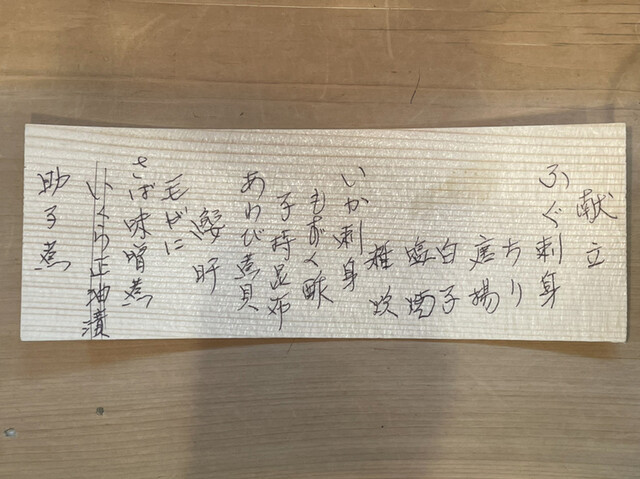 献立
ふぐ刺身
ちり
唐揚
白子
塩焼
雑炊
いか刺身
もずく酢
子持昆布
あわび煮貝
鮟肝
毛がに
さば味噌煮
いくら正油漬
助子煮